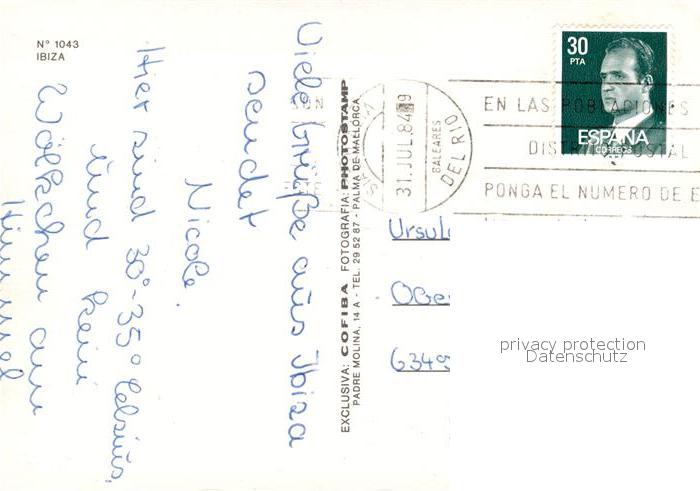 Nº 1043
IBIZA
Viele Grüße aus Ibiza
sendet
Nicole.
Hier sind 30°-35° Celsius,
und kein
Wölkchen am
Himmel
EXCLUSIVA: COFIBA FOTOGRAFIA: PHOTOSTAMP
PADRE MOLINA, 14 A - TEL. 29 52 87 - PALMA DE MALLORCA
30
PTA
ESPAÑA
CORREOS
31.JUL.84
BALEARES
DEL RIO
EN LAS POBLACIONES
DISTRITO POSTAL
PONGA EL NUMERO DE
privacy protection
Datenschutz